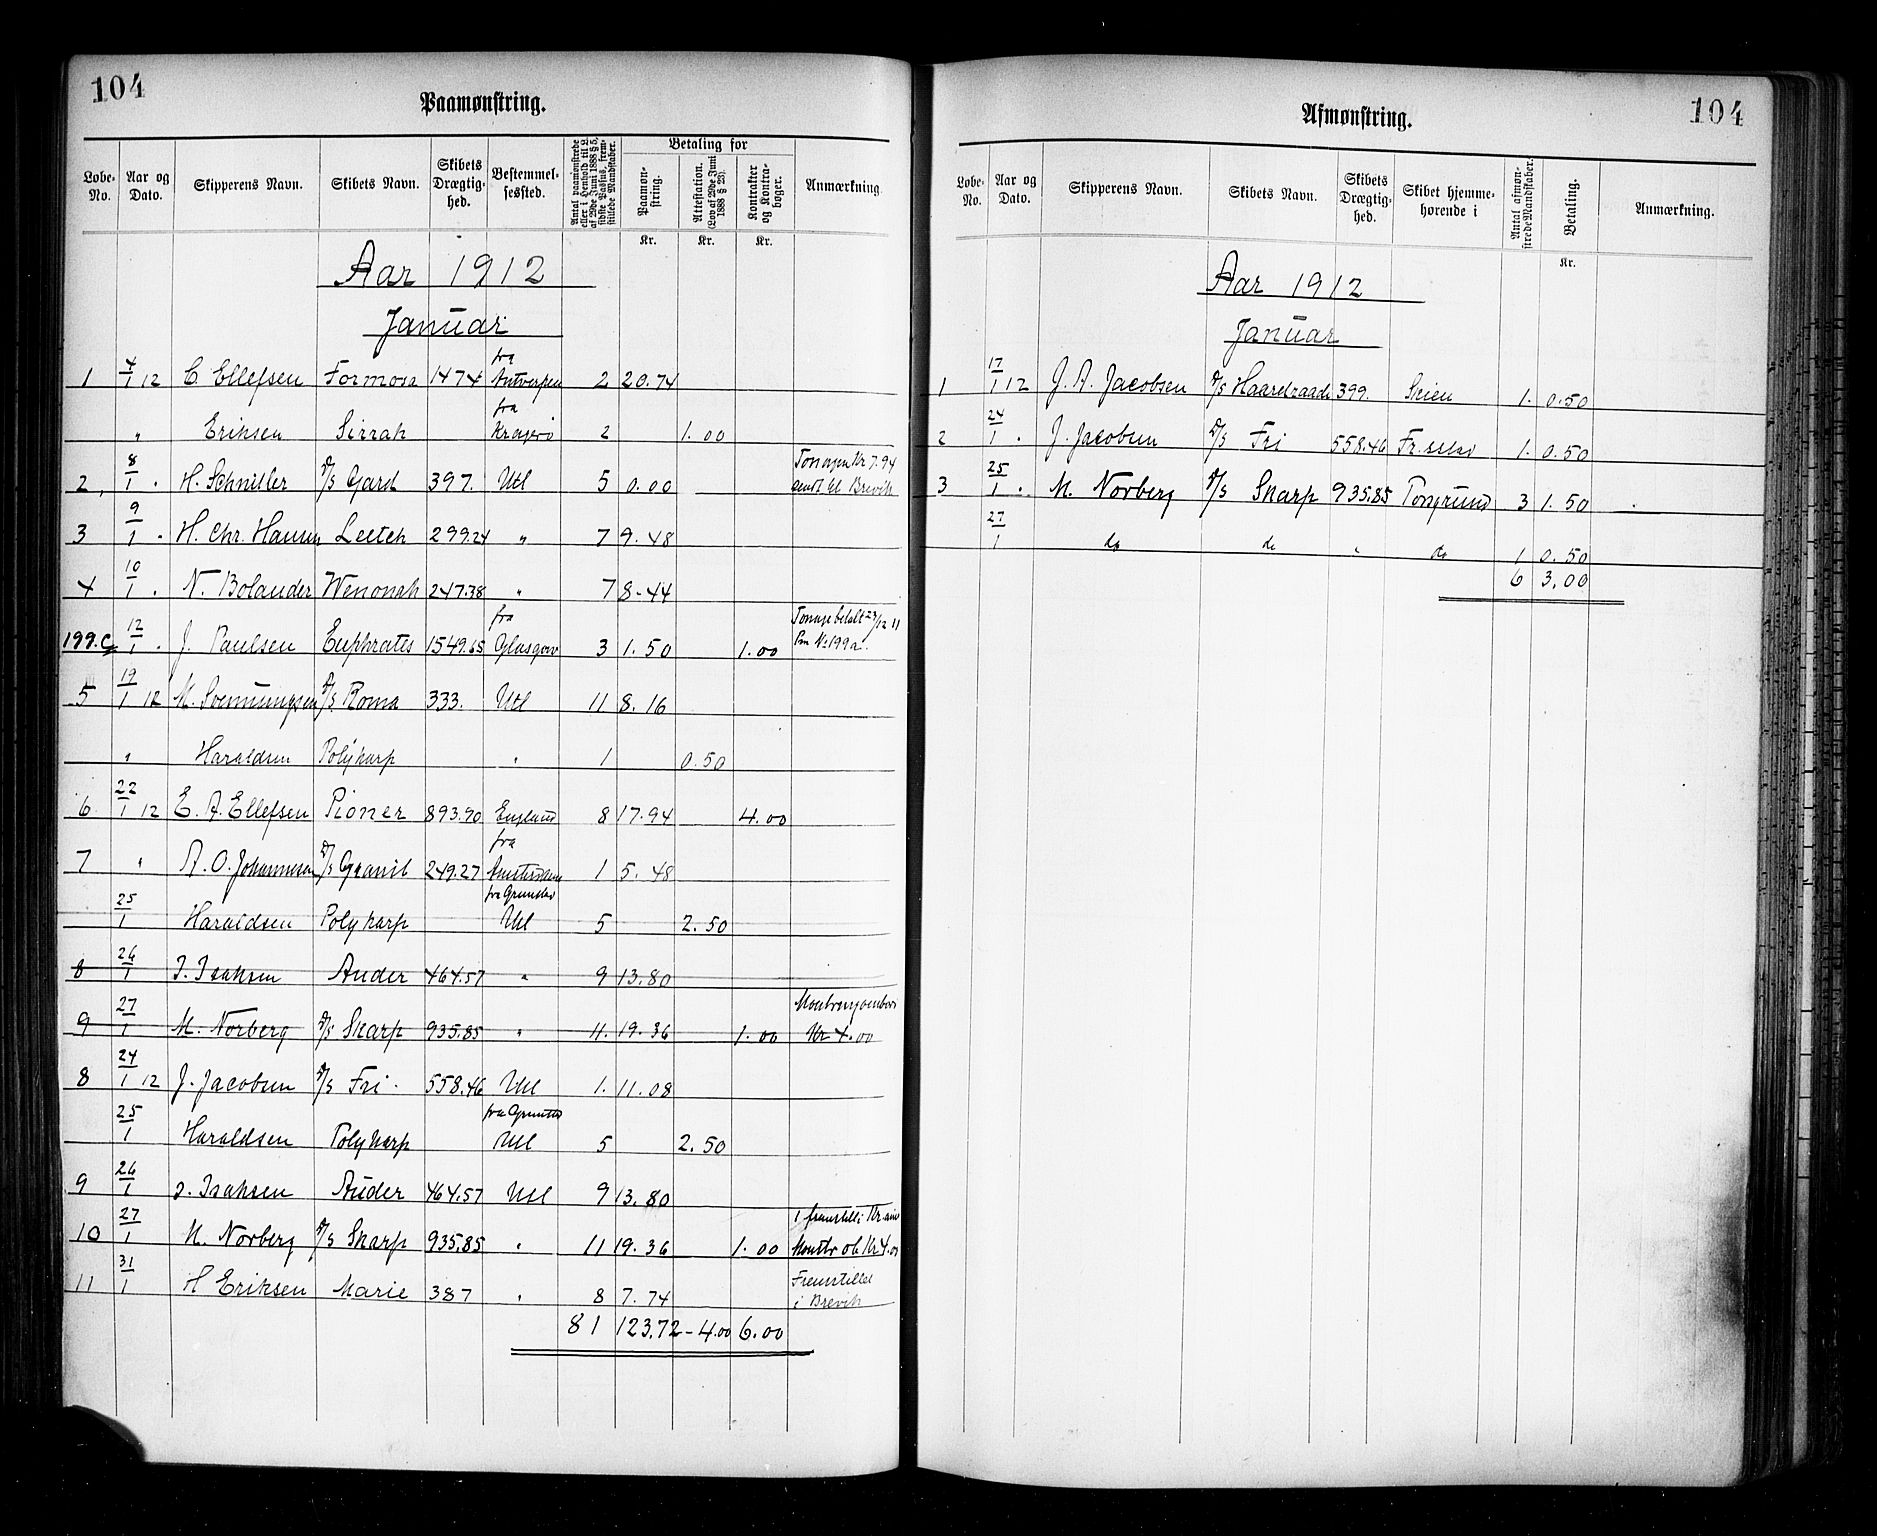 104
Paamønstring.
Løbe-No. Aar og Dato. Skipperens Navn. Skibets Navn. Skibets Drægtighed. Bestemmelsessted. Antal paamønstrede eller i Henhold til L. af 29de Juni 1888 § 5, sidste Passus, fremstillede Mandskaber. Betaling for Paamønstring. Attestation. (Lov af 29de Juni 1888 § 23). Kontrakter og Kontrabøger. Anmærkning.
Kr. Kr. Kr.
Aar 1912
Januar
1 4/1 12 C. Ellefsen Formosa 1474 fra Antverpen 2 20.74
„ Eriksen Sirrah fra Kragerø 2 1.00
2, 8/1 . H. Schnitler D/S Gard 397. Utl 5 0.00 Tonagen Kr 7.94 sendt til Brevik
3 9/1 . H. Chr. Hansen Leetch 299.24 „ 7 9.48
4 10/1 . N. Bolander Wenonah 247.38 „ 7 8-44
199.C 12/1 . J. Paulsen Euphrates 1549.65 fra Glasgow 3 1.50 1.00 Tonage betalt 23/12 11 Pm No 199a.
5 19/1 12 M. Svenumgsen D/S. Roma 333. Utl 11 8.16
„ Haraldsen Polykarp „ 1 0.50
6 22/1 12 E. A. Ellefsen Pioner 893.90 England 8 17.94 4.00
7 „ A. O. Johannesen D/S Granit 249.27 fra Amsterdam 1 5.48
25/1 Haraldsen Polykarp fra Grimstad Utl 5 2.50
8 26/1 J. Isaksen Ander 464.57 „ 9 13.80
9 27/1 M. Norberg D/S Skarp 935.85 „ 11. 19.36 1.00 Kr 4.00
8 24/1 12 J. Jacobsen D/S Fri. 558.46 Utl 1. 11.08
25/1 Haraldsen Polykarp fra Grimstad Utl 5 2.50
9 26/1 J. Isaksen Ander 464.57 Utl 9 13.80
10 27/1 M. Norberg D/S Skarp 935.85 „ 11 19.36 1.00 1 fremstill: Kr. Kr 4.00
11 31/1 H Eriksen Marie 387 „ 8 7.74 Fremstillet i Brevik
81 123.72 - 4.00 6.00
104
Afmønstring.
Løbe-No. Aar og Dato. Skipperens Navn. Skibets Navn. Skibets Drægtighed. Skibet hjemmehørende i Antal afmønstrede Mandskaber. Betaling. Anmærkning.
Kr.
Aar 1912
Januar
1 17/1 12 J. A. Jacobsen D/S Haardraade 399. Skien 1. 0.50
2 24/1 . J. Jacobsen D/S Fri 558.46 Fr.stad 1. 0.50
3 25/1 . M. Norberg D/S Skarp 935.85 Porsgrund 3 1.50
27/1 do do „ do 1 0.50
6 3,00